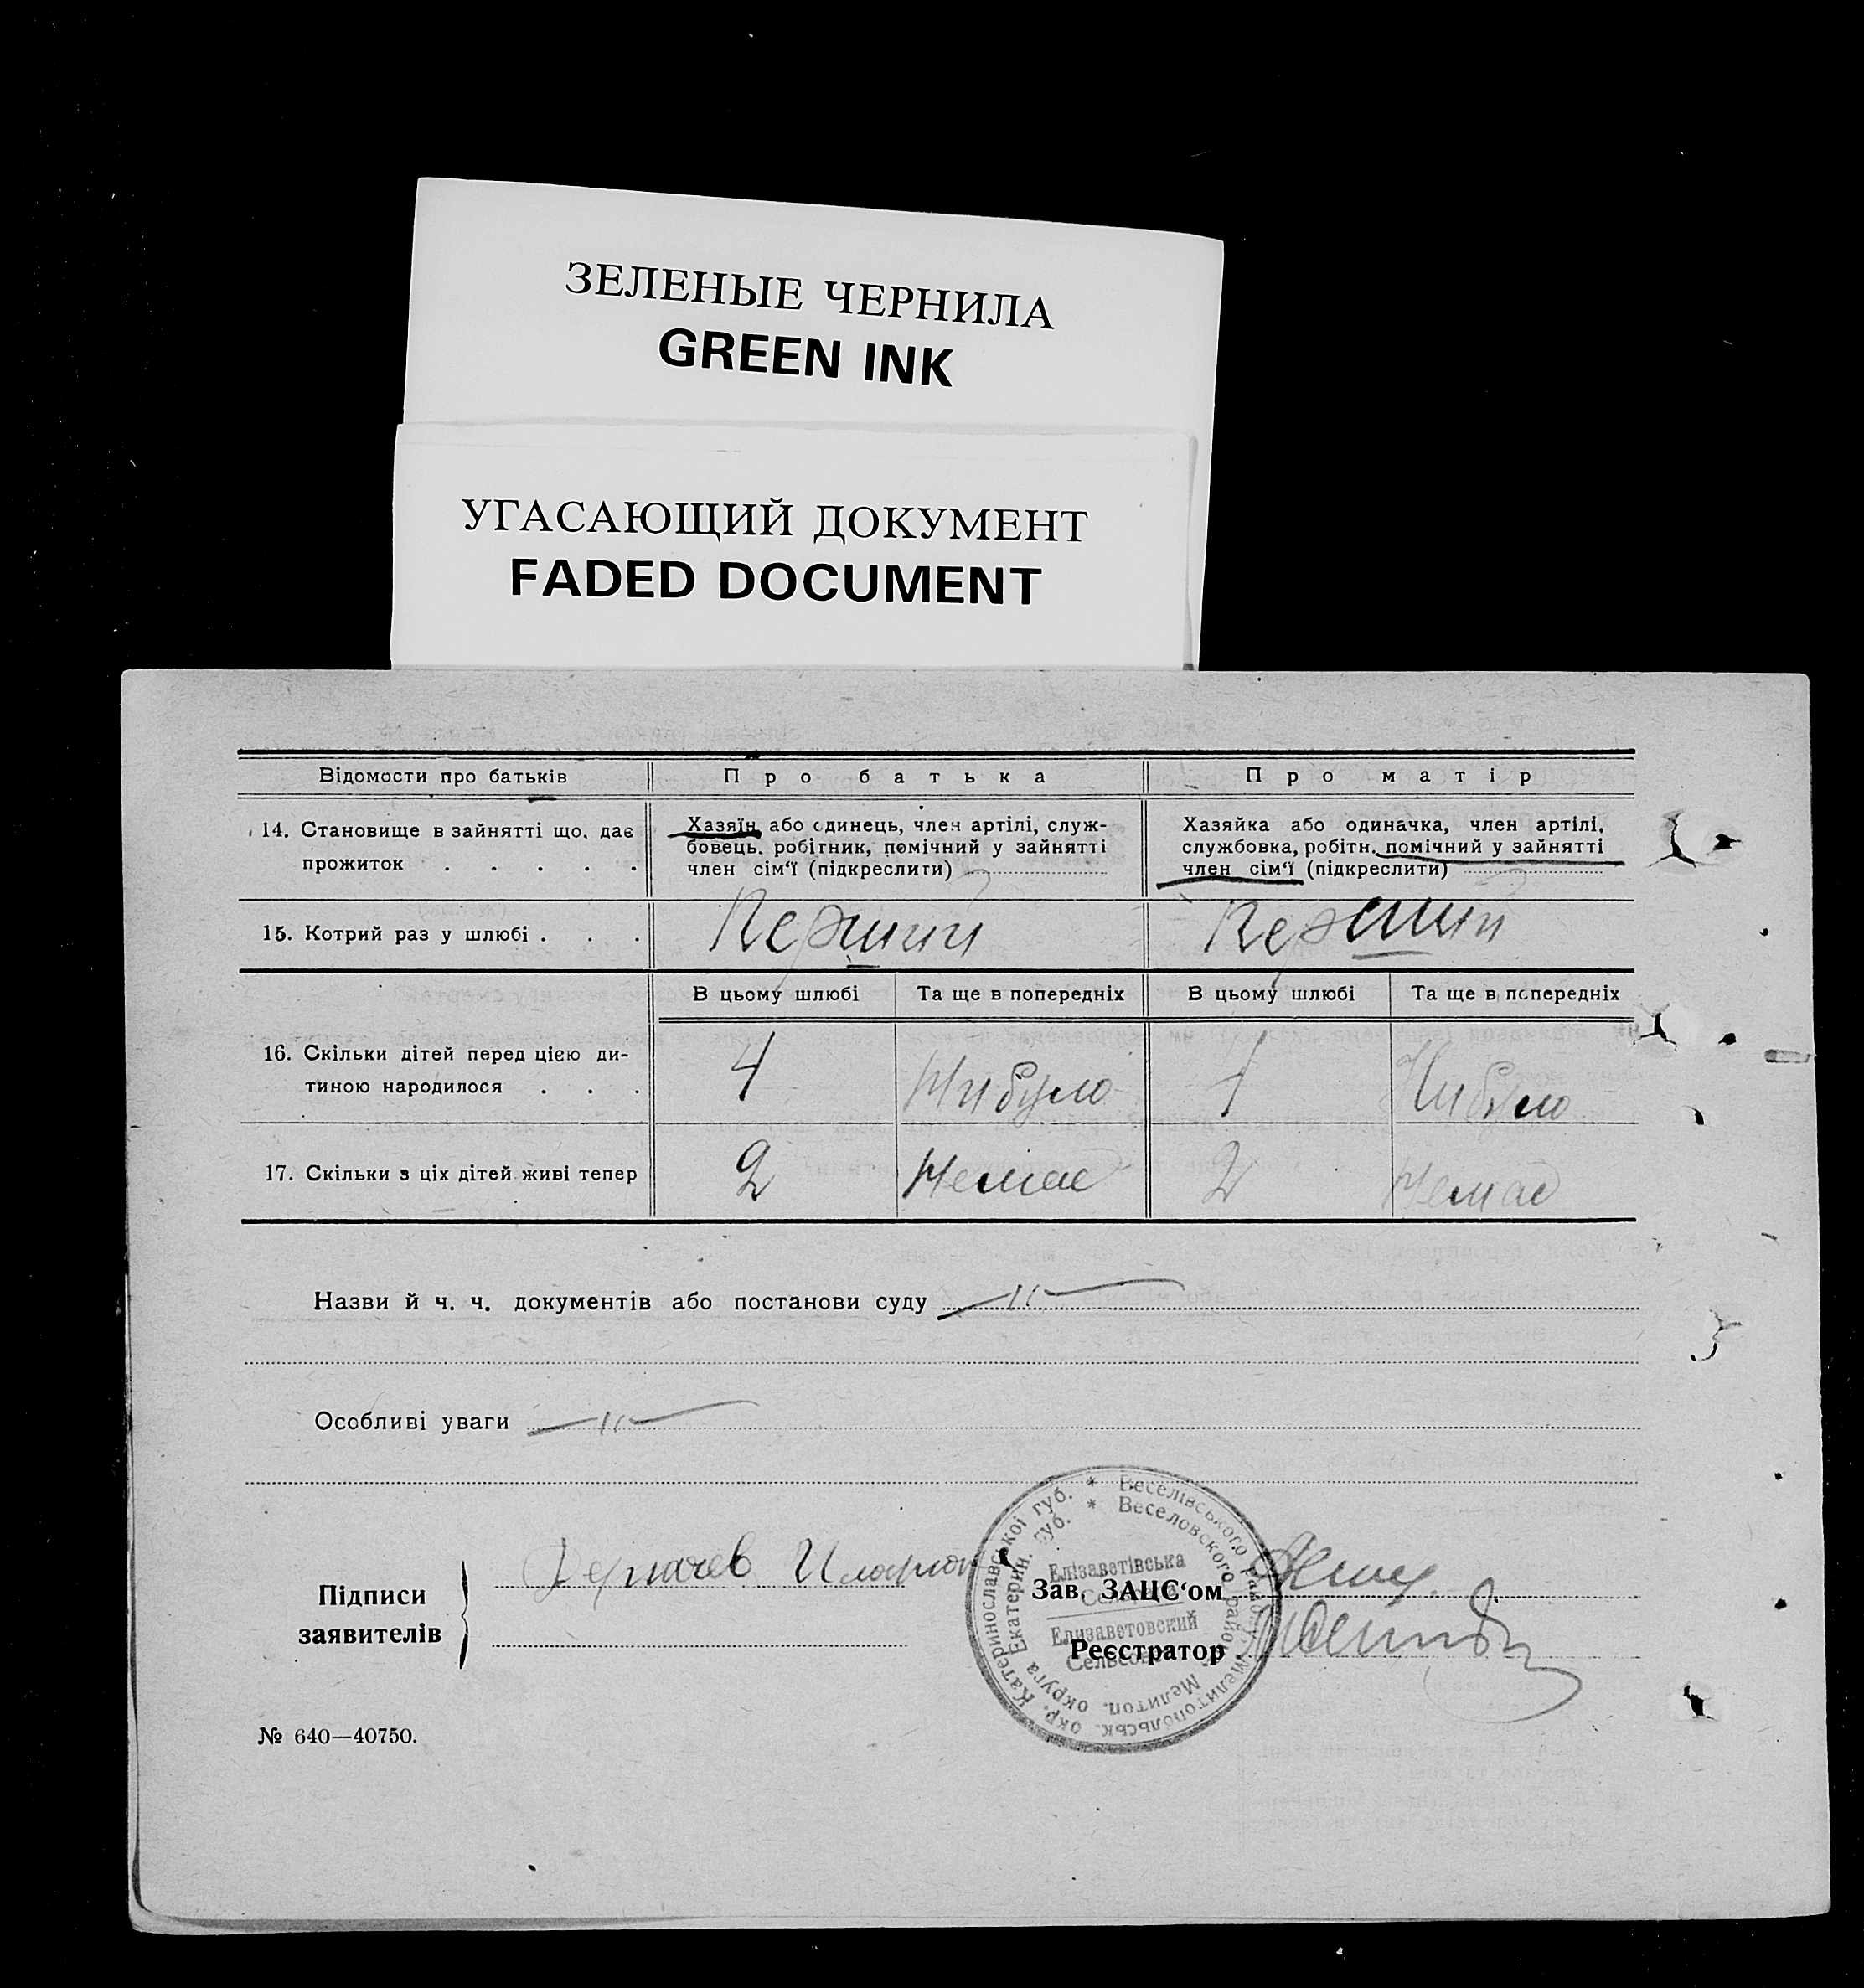 ЗЕЛЕНЫЕ ЧЕРНИЛА
GREEN INK
УГАСАЮЩИЙ ДОКУМЕНТ
FADED DOCUMENT
Відомости про батьків Про батька Про матір
14. Становище в зайнятті що, дає прожиток . . . . .
Хазяїн або одинець, член артілі, служ-
бовець. робітник, помічний у зайнятті
член сім‘ї (підкреслити)
Хазяйка або одиначка, член артілі,
службовка, робітн. помічний у зайнятті
член сім‘ї (підкреслити)
15. Котрий раз у шлюбі . . . Перший Перший
В цьому шлюбі Та ще в попередніх В цьому шлюбі Та ще в попередніх
16. Скільки дітей перед цією ди-
тиною народилося . . . 4 Нибуло Нибуло
17. Скільки з ціх дітей живі тепер 2 Немає 2 Немає
Назви й ч. ч. документів або постанови суду —"—
Особливі уваги —"—
Підписи
заявителів
Дергачев Иларион
Зав. ЗАЦС‘ом
Реєстратор
* Веселівського району Мелитопольськ. окр. Катеринославської губ.
* Веселовского района Мелитоп. округа Екатерин. губ.
Елізаветівська
Сельрада
Елизаветовский
Сельсовет
№ 640—40750.